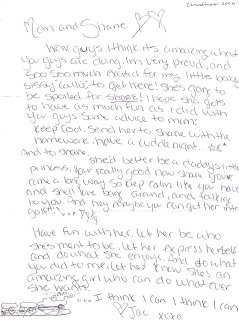 Christmas 2005
Mom and Shane
Hey guys I think it's amazing what
you guys are doing. I'm very proud, and
soo soo much excited for my little baby
sissy Callie to get here! She's going to
be spoiled for shore! I hope she gets
to have as much fun as I did with
you guys. Some advice to mom:
keep cool, send her to Shane with the
homework, have a cuddle night.
And to Shane
she'd better be a daddy's little
princess, Your really good now Shane you've
came a long way. So keep calm like you have
and she'll love being around, and talking
to you. And hey maybe you can get her into
Have fun with her, let her be who
she's ment to be, let her express herself
and do what she enjoys. And do what
you did to me, let her know she's an
amazing girl who can do what ever
she wants.
I think I can I think I can
Jac xoxo